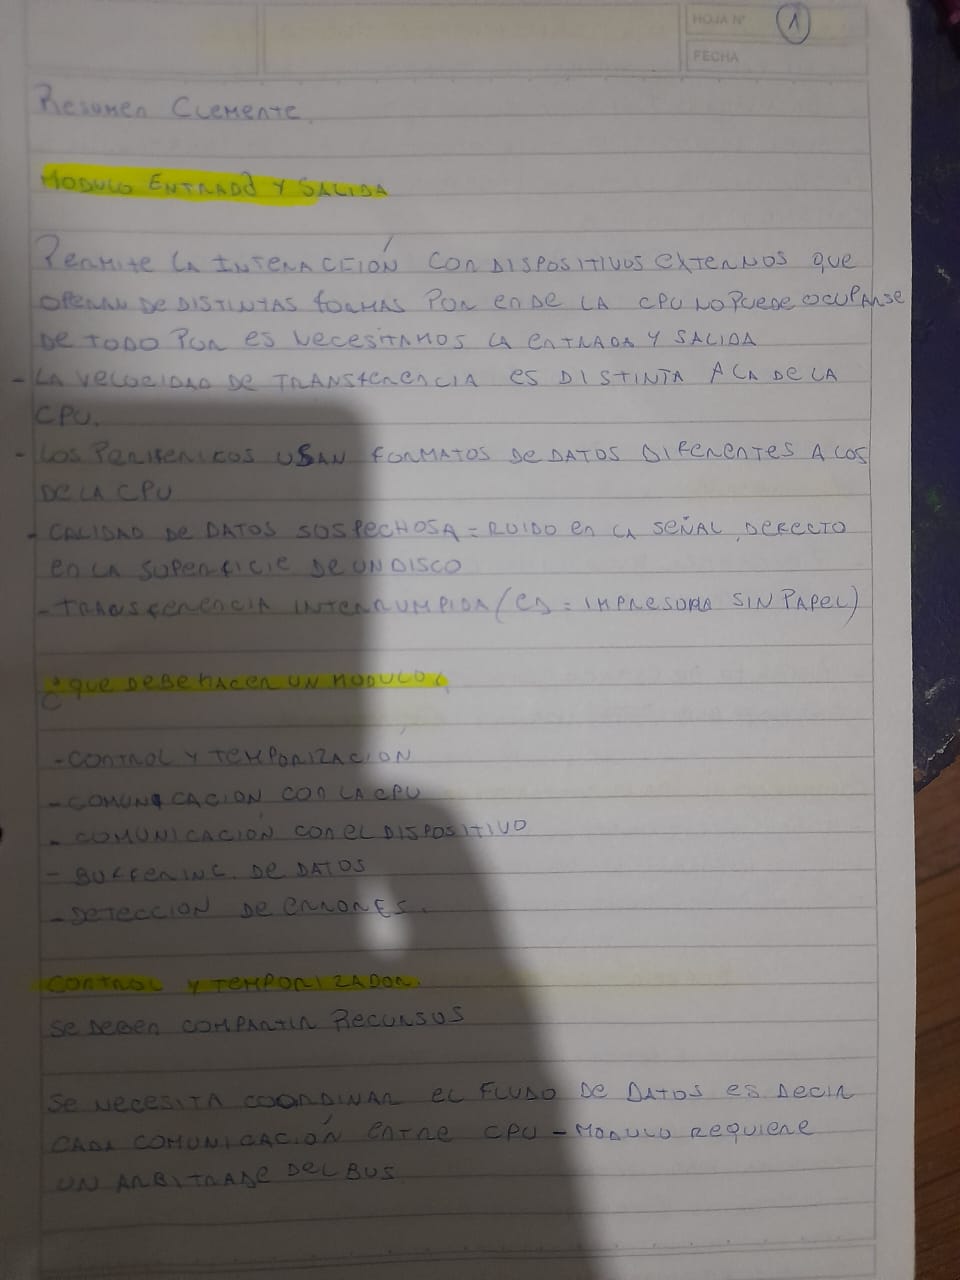 HOJA Nº 1
FECHA
Resumen Clemente.
MODULO ENTRADA Y SALIDA
Permite la INTERACCIÓN CON DISPOSITIVOS externos que
operan de DISTINTAS formas Por ende LA CPU NO PUEDE OCUPARSE
DE TODO Por es Necesitamos la entrada y SALIDA
- LA velocidad de TRANSferencia es DISTINTA A LA DE LA
CPU.
- LOS Perifericos USAN FORMATOS DE DATOS DIFERENTES A LOS
DE LA CPU
- CALIDAD DE DATOS SOSPECHOSA = RUIDO en LA SEÑAL, DEFECTO
en LA SUPERFICIE DE UN DISCO
- TRANSferencia INTERRUMPIDA (EJ = IMPRESORA SIN PAPEL)
¿QUE DEBE HACER UN MODULO?
- CONTROL Y TEMPORIZACION
- COMUNICACION CON LA CPU
- COMUNICACIÓN CON EL DISPOSITIVO
- BUFFERING. DE DATOS
- DETECCION DE ERRORES.
CONTROL Y TEMPORIZADOR.
SE DEBEN COMPARTIR RECURSOS
SE NECESITA COORDINAR EL FLUJO DE DATOS ES DECIR
CADA COMUNICACIÓN ENTRE CPU - MODULO REQUIERE
UN ARBITRAJE DEL BUS